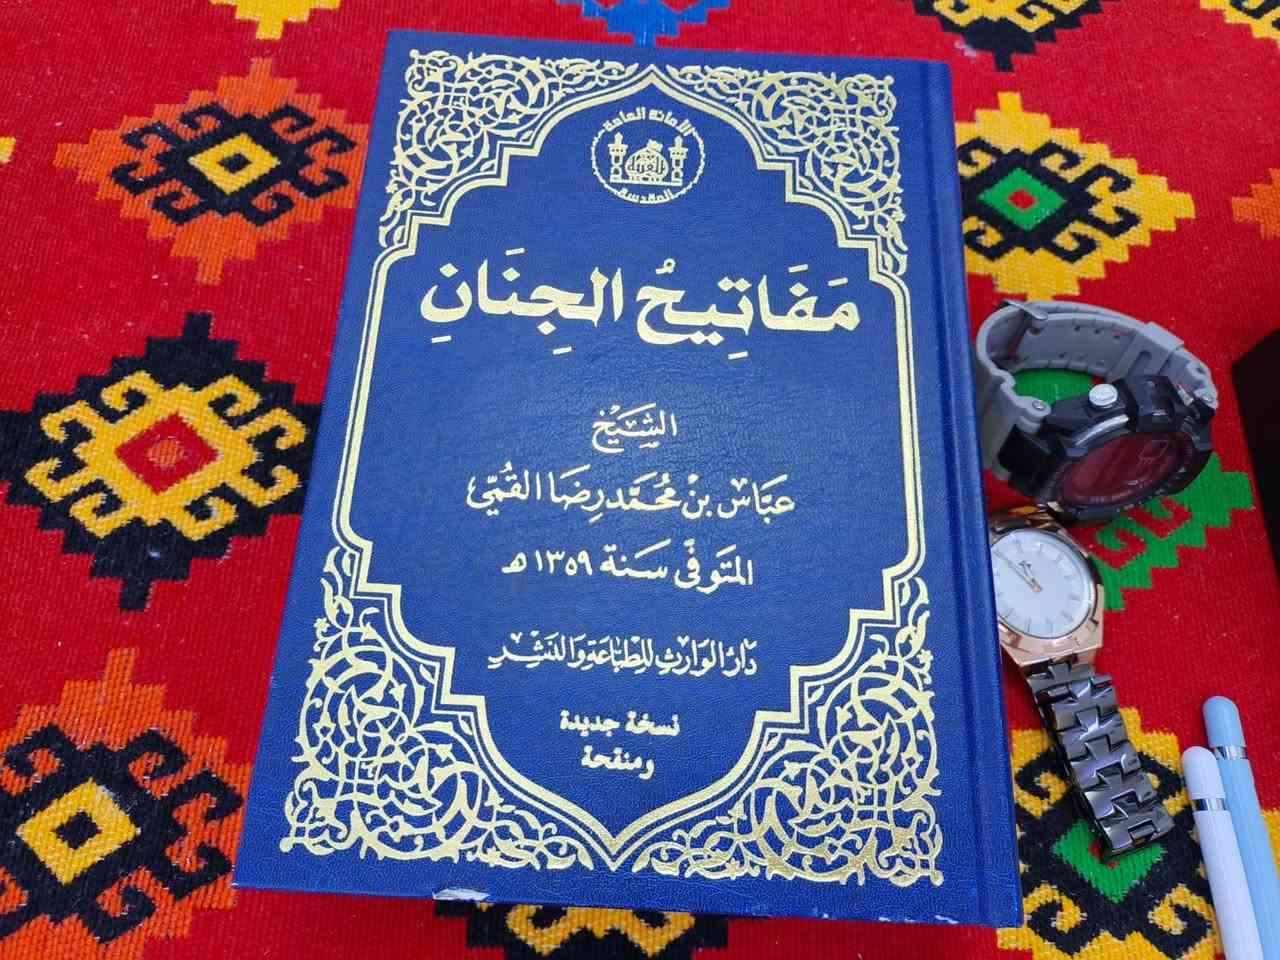 الأمانة العامة
المقدسة
مَفَاتِيحُ الجِنَانِ
الشَّيْخ
عَبَّاس بنْ مُحَمَّد رِضَا القُمِّي
المتَوفَّى سَنَة ١٣٥٩ هـ
دَارُ الوَارِثِ لِلطِّبَاعَةِ وَالنَّشْرِ
نسخة جديدة
ومنقحة